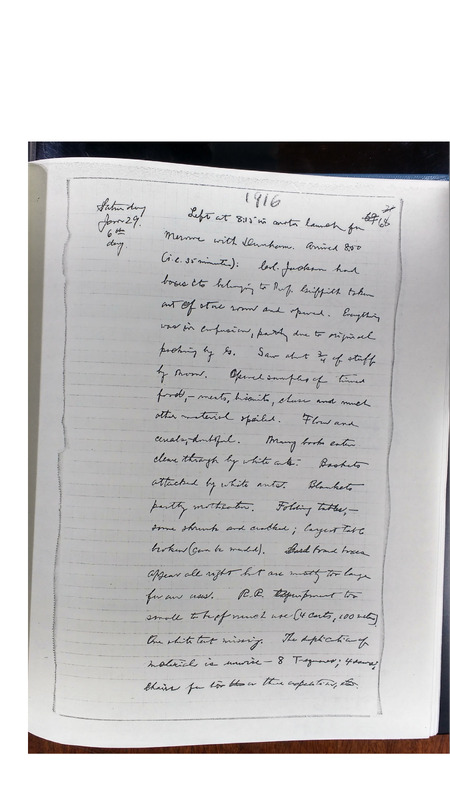 1916
Saturday
Jan 29.
6th
day.
Left at 8:15 in motor launch for
Merowe with Dunham. Arrived 8:50
(i.e. 35 minutes). Col. Jackson had
boxes etc belonging to Prof. Griffith taken
out of store room and opened. Everything
was in confusion, partly due to original
packing by G. Saw about 3/4 of stuff
by noon. Opened samples of tinned
food, – meats, biscuits, cheese and much
other material spoiled. Flour and
cereals, doubtful. Many books eaten
clear through by white ants. Baskets
attacked by white ants. Blankets
partly motheaten. Folding tables, –
some shrunk and cracked; largest table
broken (can be mended). boxes
appear all right but are mostly too large
for our uses. R.R. Equipment too
small to be of much use (4 carts, 100 metres)
One white tent missing. The duplication of
material is unwise – 8 T-squares; 4
chairs for on this expedition, etc.